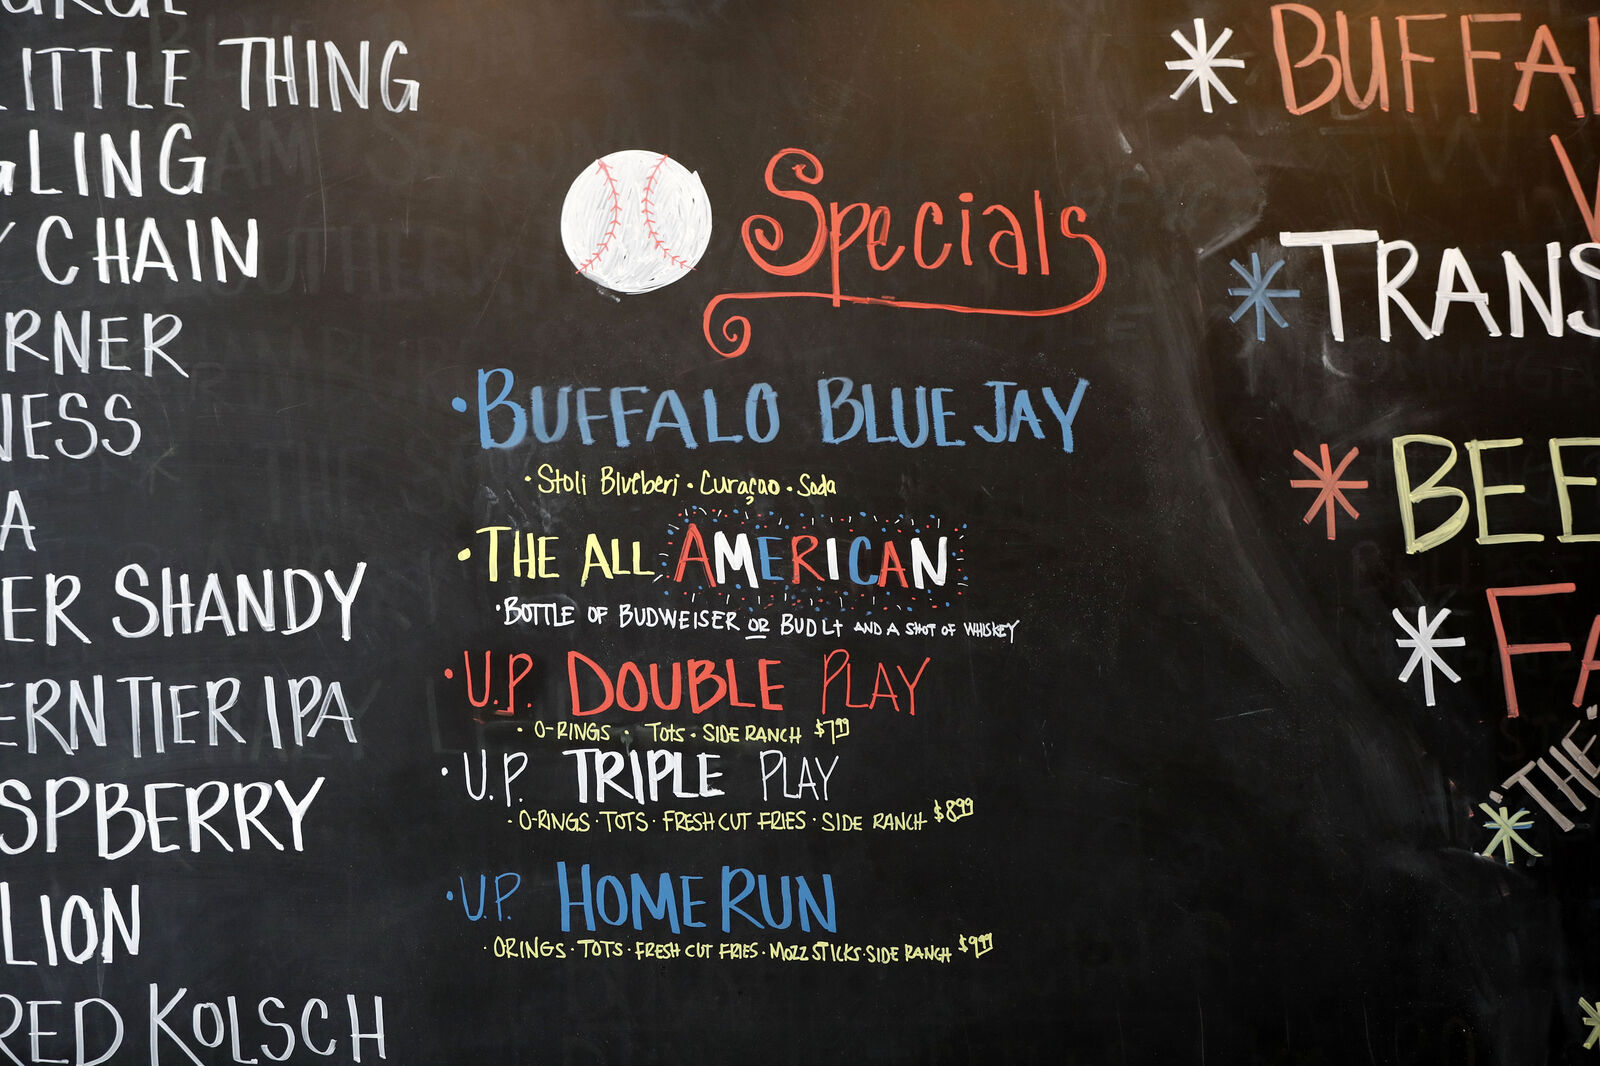 LITTLE THING
GLING
CHAIN
RNER
NESS
A
ER SHANDY
ERN TIER IPA
SPBERRY
LION
RED KOLSCH
Specials
• BUFFALO BLUE JAY
• Stoli Blueberi • Curaçao • Soda
• THE ALL AMERICAN
• BOTTLE OF BUDWEISER OR BUD Lt AND A SHOT OF WHISKEY
• U.P. DOUBLE PLAY
• O-RINGS • TOTS • SIDE RANCH $7.99
• U.P. TRIPLE PLAY
• O-RINGS • TOTS • FRESH CUT FRIES • SIDE RANCH $8.99
• U.P. HOME RUN
• ORINGS • TOTS • FRESH CUT FRIES • MOZZ STICKS • SIDE RANCH $9.99
* BUFFA
* TRANS
* BEE
* FA
* "THE"